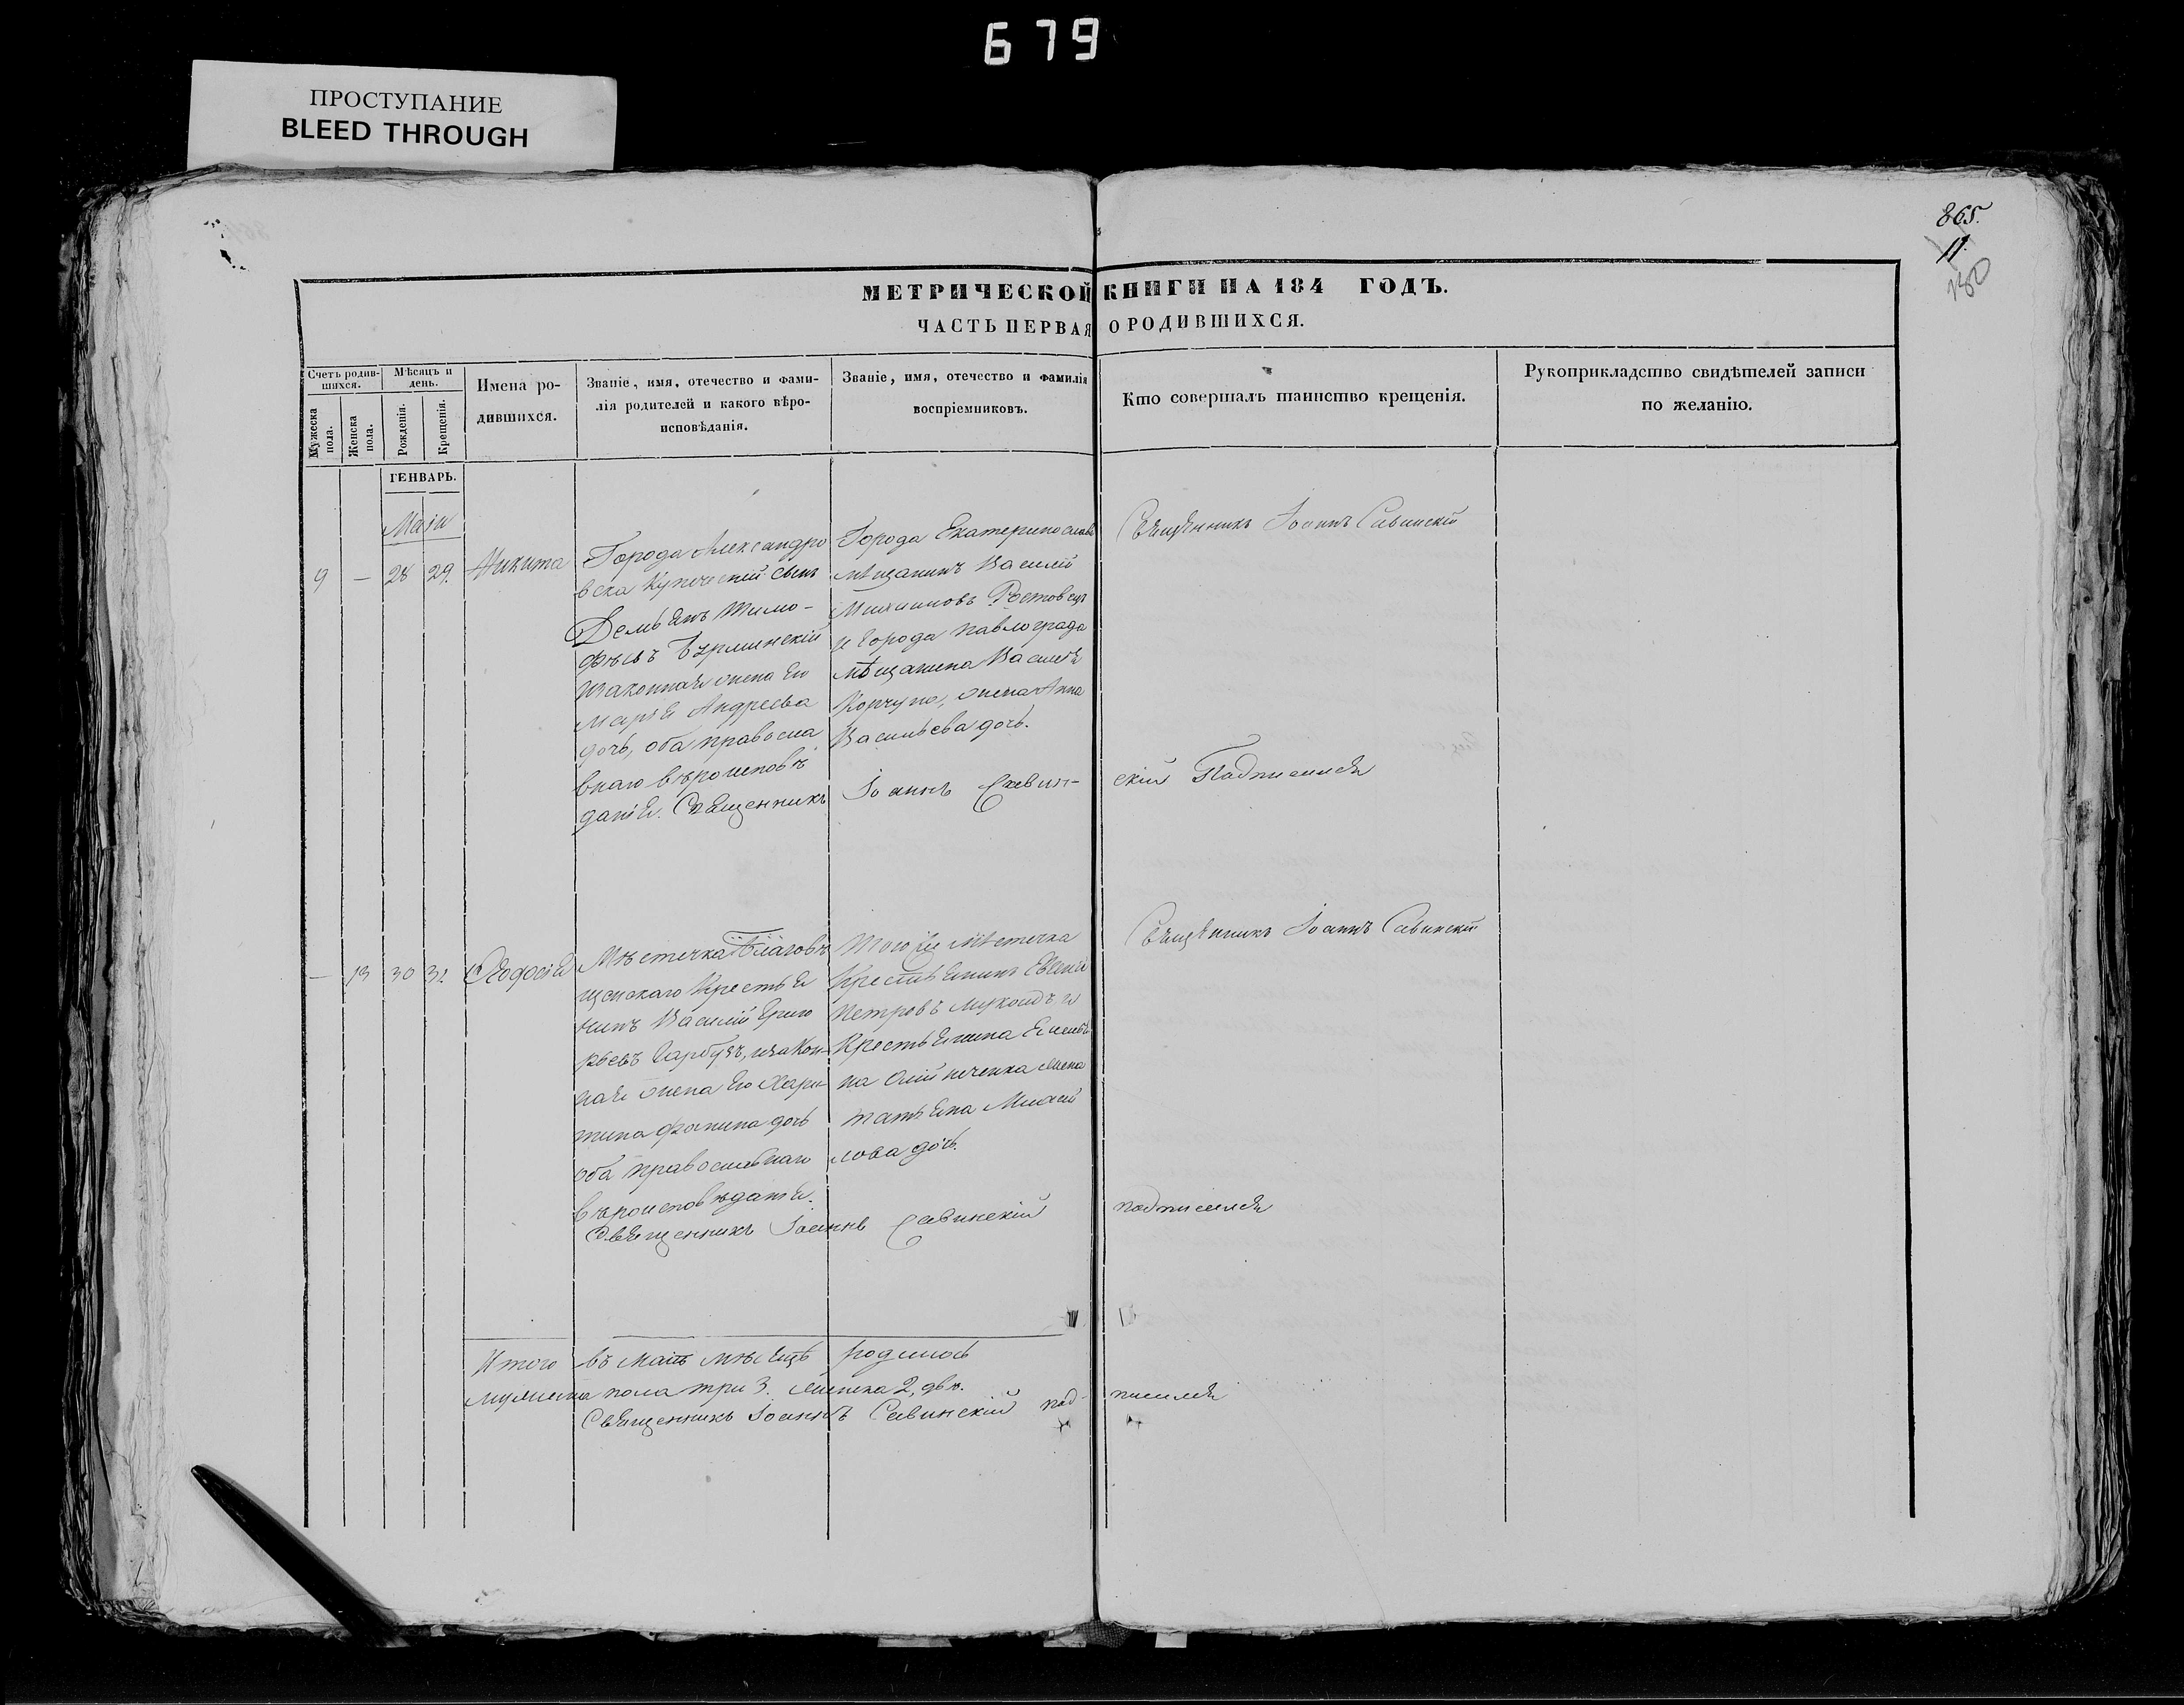 679
ПРОСТУПАНИЕ
BLEED THROUGH
865.
11.
180
МЕТРИЧЕСКОЙ КНИГИ НА 184 ГОДЪ.
ЧАСТЬ ПЕРВАЯ О РОДИВШИХСЯ.
Счетъ родившихся.
Мужеска пола.
Женска пола.
Мѣсяцъ и день.
Рожденія.
Крещенія.
Имена родившихся.
Званіе, имя, отечество и фамилія родителей и какого вѣроисповѣданія.
Званіе, имя, отечество и фамилія воспріемниковъ.
Кто совершалъ таинство крещенія.
Рукоприкладство свидѣтелей записи по желанію.
ГЕНВАРЬ.
Маіи
9 — 28 29. Никита
Города Александро
вска Купеческій сынъ
Демьянъ Тимо-
фѣевъ
изаконная жена его
Марія Андреева
дочь, оба правосла
внаго вѣроисповѣ
данія. Священникъ Іоаннъ Савин-
скій Подписался
Города Екатеринослава
мѣщанинъ Василій
Ростовецъ
и Города Павлограда
мѣщанина Василія
жена Анна
Васильева дочь.
Священникъ Іоаннъ Савинскій
— 13 30 31 Ѳеодосія
Мѣстечка Благовѣ
щенскаго Крестья
нинъ Василій Григо
рьевъ Гарбузъ, изакон-
ная жена его Хари-
тина дочь
оба православнаго
вѣроисповѣданія.
Священникъ Іоаннъ Савинскій подписался
Того же мѣстечка
Крестьянинъ
Петровъ и
Крестьянина Емелья
на жена
Татьяна Михай
лова дочь.
Священникъ Іоаннъ Савинскій
Итого въ Маіѣ мѣсяцѣ родилось
мужеска пола три 3. женска 2, двѣ.
Священникъ Іоаннъ Савинскій под-
писался